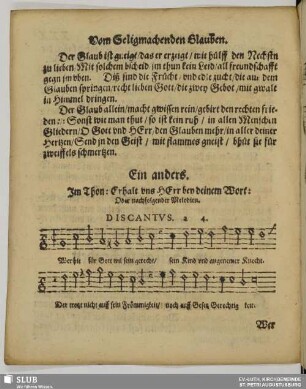 Vom Seligmachenden Glauben.
Der Glaub ist gütige / das er erzeigt / mit hülff den Nechsten
zu lieben Mit solchem bscheid jm thun kein Leid / all freundschafft
gegn jm vben. Diß sind die Frücht / vnd edle zucht / die auß dem
Glauben springen / recht lieben Gott / die zwey Gebot / mit gwalt
in Himmel dringen.
Der Glaub allein / macht gwissen rein / gebirt den rechten frie-
den :: Sonst wie man thut / so ist kein ruh / in allen Menschen
Gliedern / O Gott vnd HErr / den Glauben mehr / in aller deiner
Hertzen / Send in den Geist / mit flammes gneist / bhüt sie für
zweiffels schmertzen.
Ein anders.
Im Thon: Erhalt vns HErr bey deinem Wort:
Oder nachfolgender Melodien.
DISCANTVS. à 4.
Wer hie für Gott wil sein gerecht / sein Kind vnd angenemer Knecht.
Der trotzt nicht auff sein Frömmigkeit / noch auff Gesetz Gerechtigkeit:
Wer
SLUB
Wir führen Wissen.
EV.-LUTH. KIRCHGEMEINDE
ST. PETRI AUGUSTUSBURG